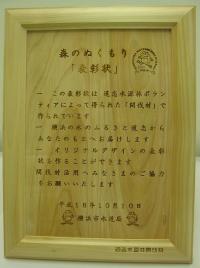 森のぬくもり
「表彰状」
一 この表彰状は 道志水源林ボラン
ティアによって得られた「間伐材」で
作られています
一 横浜の水のふるさと道志から
あなたのもとへお届けします
一 オリジナルデザインの表彰
状を作ることができます
間伐材活用へみなさまのご協力
をお願いいたします
平成18年10月10日
横浜市水道局